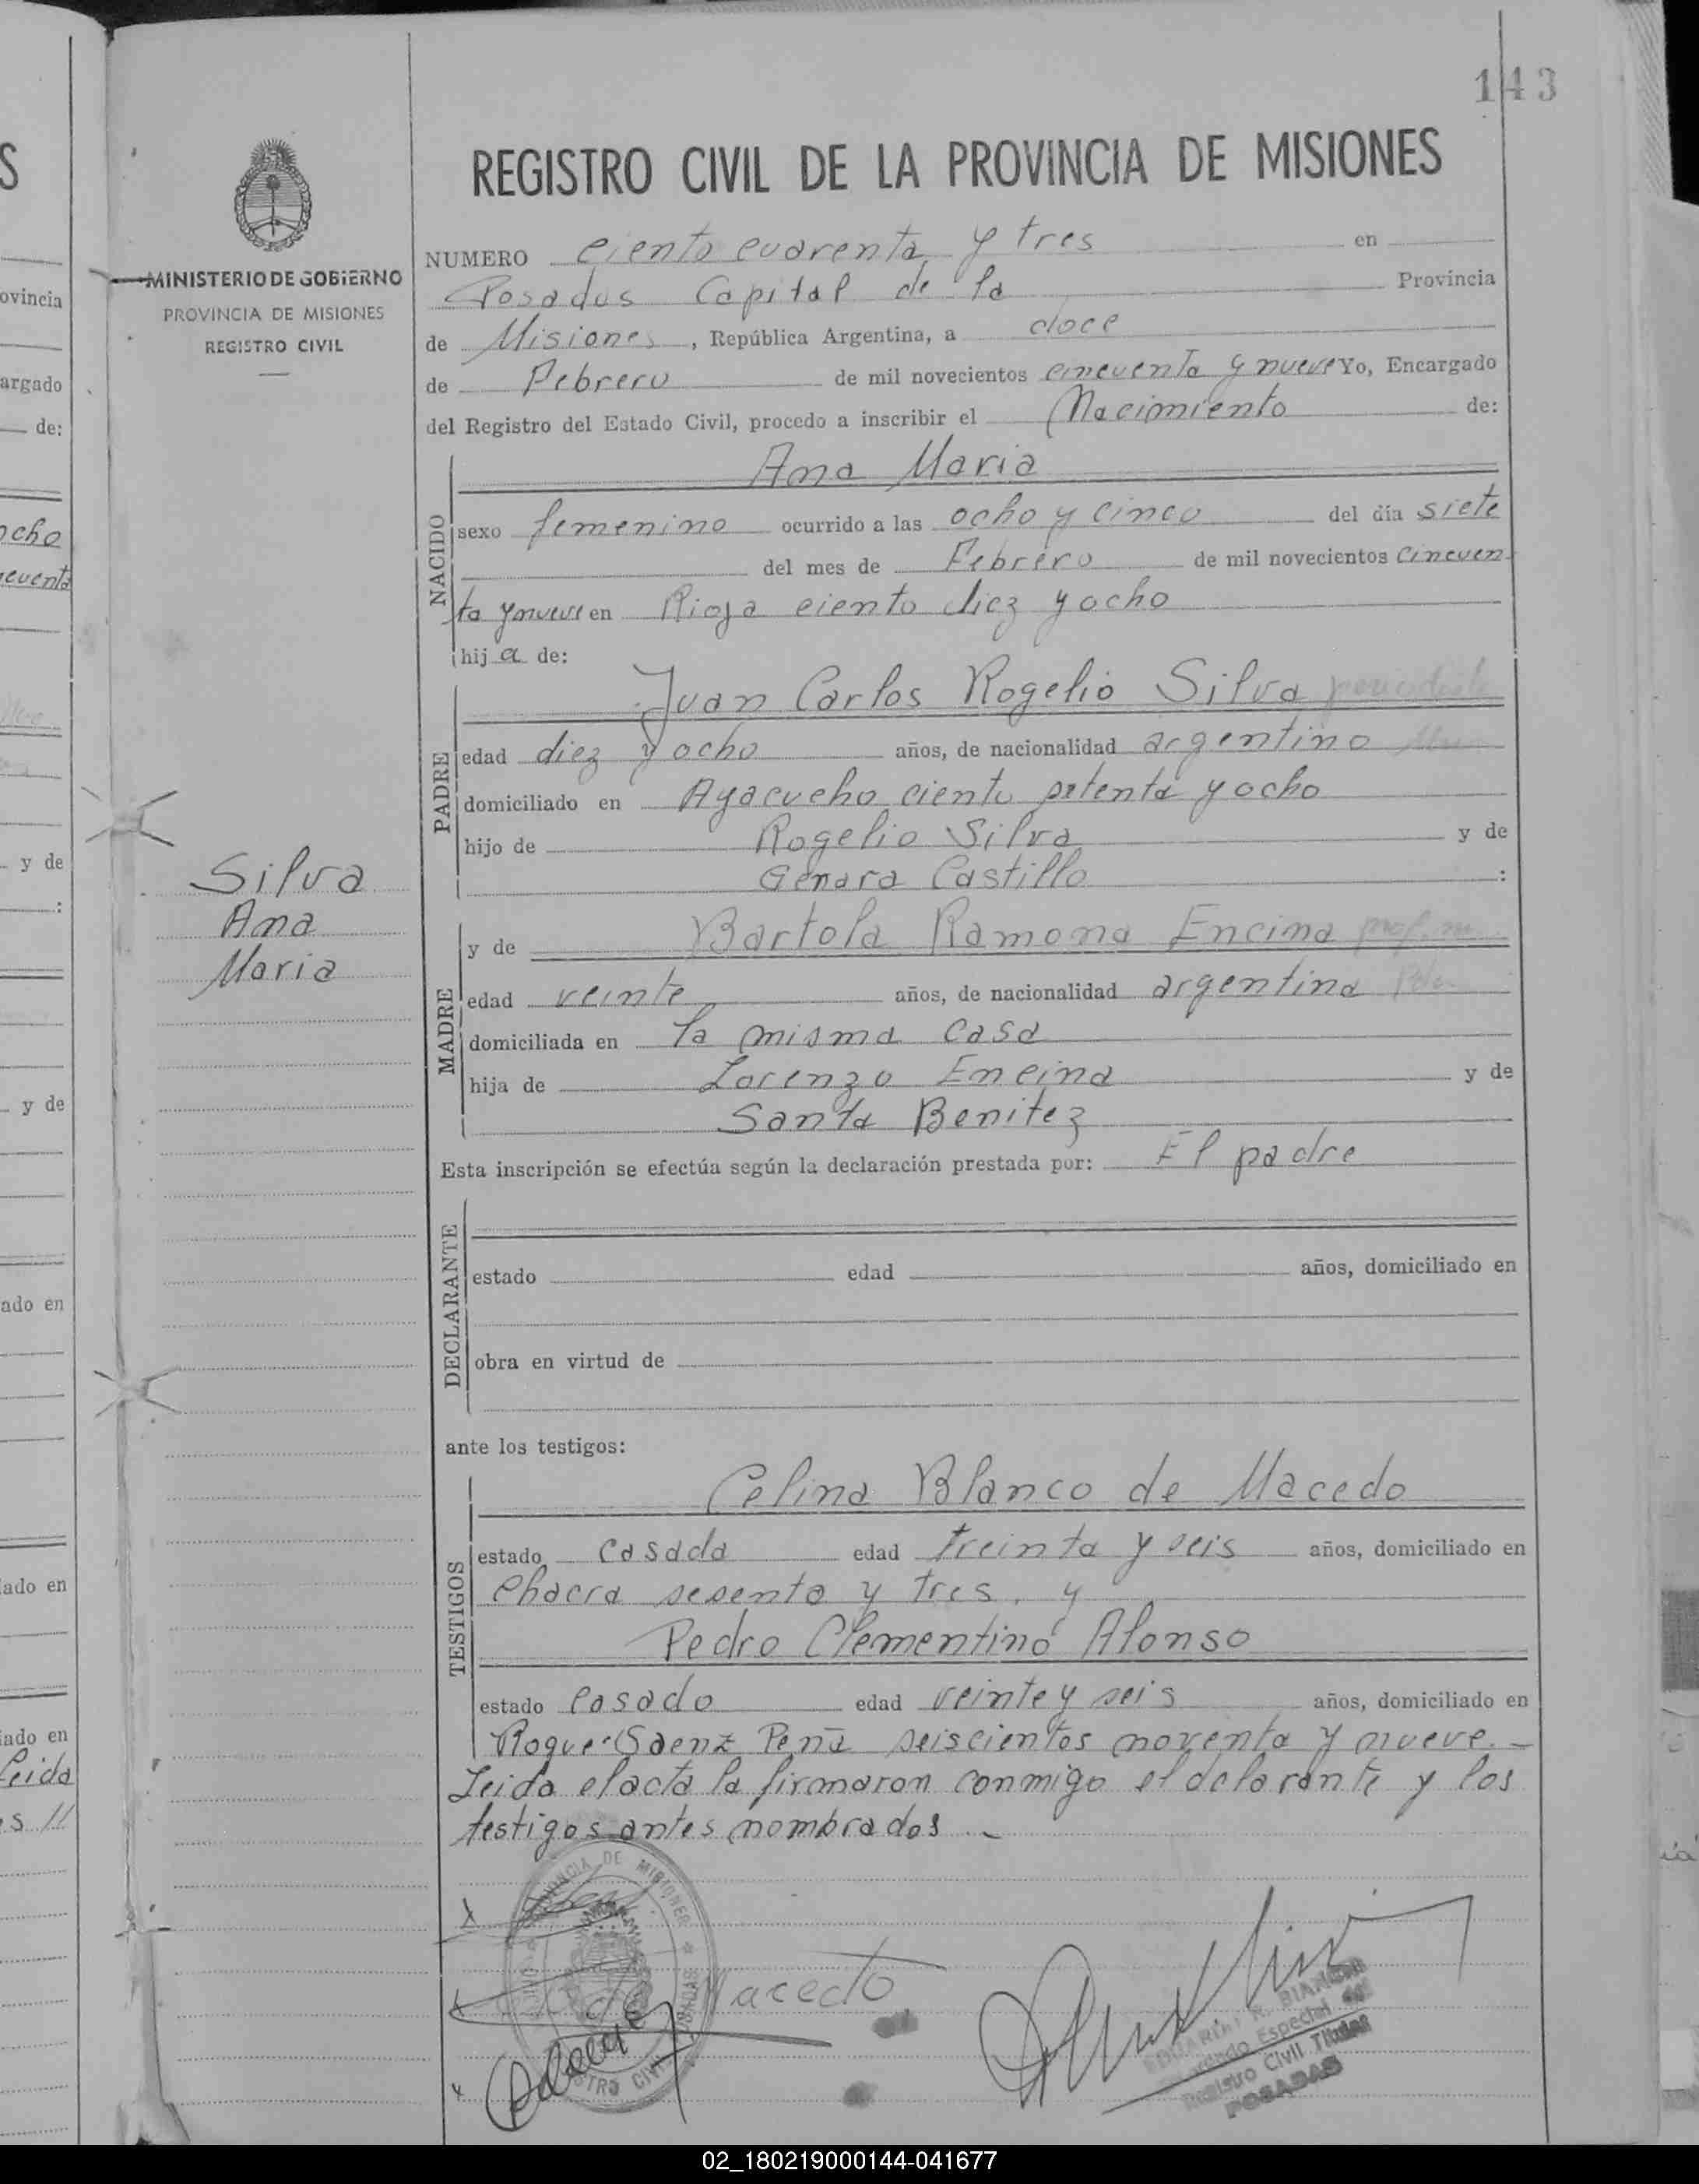 143
REGISTRO CIVIL DE LA PROVINCIA DE MISIONES
MINISTERIO DE GOBIERNO
PROVINCIA DE MISIONES
REGISTRO CIVIL
NUMERO ciento cuarenta y tres en
Posadas Capital de la Provincia
de Misiones, República Argentina, a doce
de Febrero de mil novecientos cincuenta y nueve Yo, Encargado
del Registro del Estado Civil, procedo a inscribir el Nacimiento de:
NACIDO
Ana Maria
sexo femenino ocurrido a las ocho y cinco del día siete
del mes de Febrero de mil novecientos cincuen
ta y nueve en Rioja ciento diez y ocho
hija de:
PADRE
Juan Carlos Rogelio Silva
edad diez y ocho años, de nacionalidad argentino
domiciliado en Ayacucho ciento setenta y ocho
hijo de Rogelio Silva y de
Genara Castillo :
Silva
Ana
Maria
MADRE
y de Bartola Ramona Encina
edad veinte años, de nacionalidad argentina
domiciliada en la misma casa
hija de Lorenzo Encina y de
Santa Benitez
Esta inscripción se efectúa según la declaración prestada por: El padre
DECLARANTE
estado edad años, domiciliado en
obra en virtud de
ante los testigos:
TESTIGOS
Celina Blanco de Macedo
estado casada edad treinta y seis años, domiciliado en
chacra sesenta y tres, y
Pedro Clementino Alonso
estado casado edad veinte y seis años, domiciliado en
Roque Saenz Peña seiscientos noventa y nueve.-
Leida el acta la firmaron conmigo el delarante y los
testigos antes nombrados.-
PROVINCIA DE MISIONES
de Macedo
Registro Civil Titular
POSADAS
ovincia
argado
de:
ocho
y de
y de
ado en
ado en
iado en
leida
02_180219000144-041677